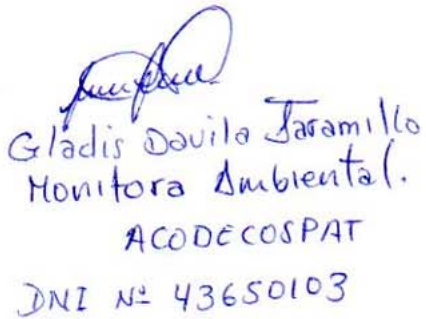 Gladis Davila Jaramillo
Monitora Ambiental.
ACODECOSPAT
DNI Nº 43650103